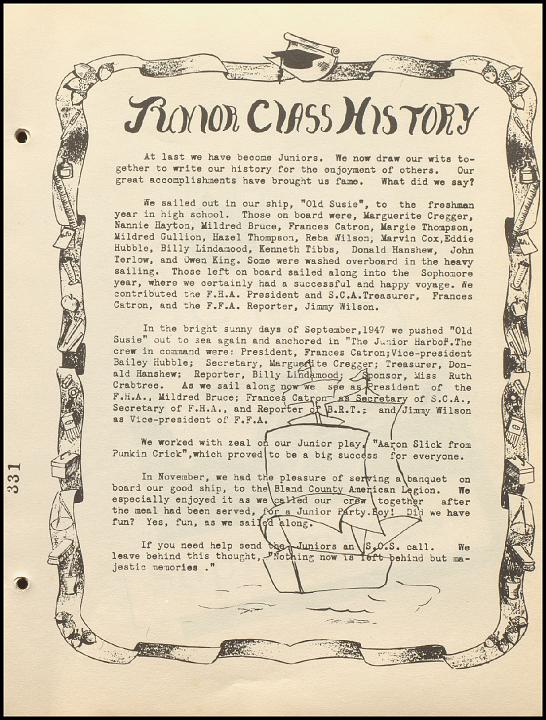 JUNIOR CLASS HISTORY
At last we have become Juniors. We now draw our wits to-
gether to write our history for the enjoyment of others. Our
great accomplishments have brought us fame. What did we say?
We sailed out in our ship, "Old Susie", to the freshman
year in high school. Those on board were, Marguerite Cregger,
Nannie Hayton, Mildred Bruce, Frances Catron, Margie Thompson,
Mildred Gullion, Hazel Thompson, Reba Wilson; Marvin Cox,Eddie
Hubble, Billy Lindamood, Kenneth Tibbs, Donald Hanshew, John
Terlow, and Owen King. Some were washed overboard in the heavy
sailing. Those left on board sailed along into the Sophomore
year, where we certainly had a successful and happy voyage. We
contributed the F.H.A. President and S.C.A.Treasurer, Frances
Catron, and the F.F.A. Reporter, Jimmy Wilson.
In the bright sunny days of September,1947 we pushed "Old
Susie" out to sea again and anchored in "The Junior Harbor.The
crew in command were: President, Frances Catron;Vice-president
Bailey Hubble; Secretary, Marguerite Cregger; Treasurer, Don-
ald Hanshew; Reporter, Billy Lindamood; Sponsor, Miss Ruth
Crabtree. As we sail along now we see as President of the
F.H.A., Mildred Bruce; Frances Catron as Secretary of S.C.A.,
Secretary of F.H.A., and Reporter of B.R.T.; and Jimmy Wilson
as Vice-president of F.F.A.
We worked with zeal on our Junior play, "Aaron Slick from
Punkin Crick",which proved to be a big success for everyone.
In November, we had the pleasure of serving a banquet on
board our good ship, to the Bland County American Legion. We
especially enjoyed it as we called our crew together after
the meal had been served, for a Junior Party.Boy! Did we have
fun? Yes, fun, as we sailed along.
If you need help send the Juniors an S.O.S. call. We
leave behind this thought, "Nothing now is left behind but ma-
jestic memories ."
331